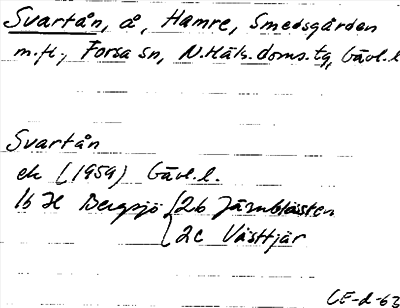 Svartån, å, Hamre, Smedsgården
m.fl., Forsa sn, N.Häls.doms.tg, Gävl.l
Svartån
ek (1959) Gävl.l.
16 H Bergsjö {2b Järnblästen
2c Västtjär
CE-d-63